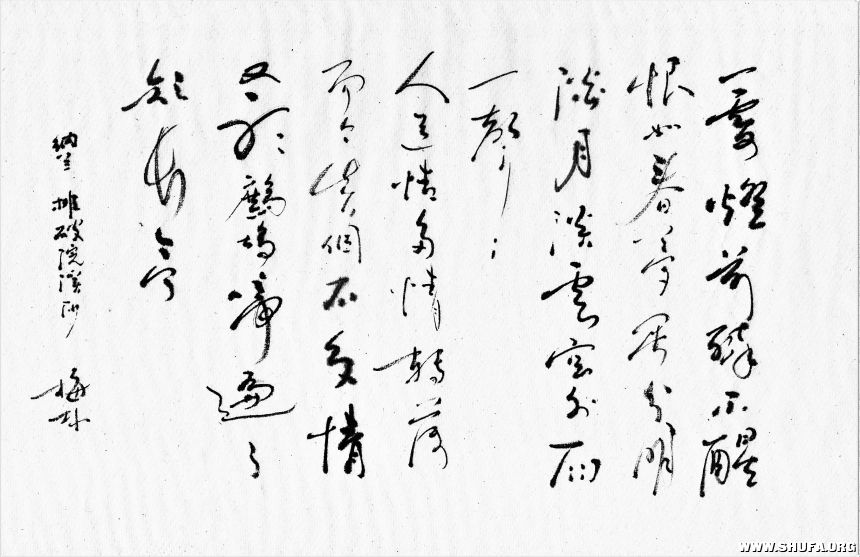 一霎燈前醉不醒
恨如春夢畏分明
淡月淡雲窗外雨
一聲々
人道情多情轉薄
而今真個不多情
又聽鷓鴣啼遍了
短長亭
納兰 摊破浣溪沙 梅
WWW.SHUFA.ORG